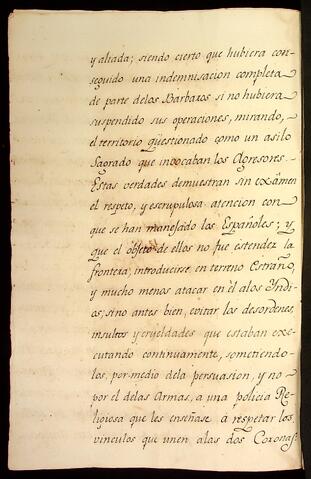 y aliada; siendo cierto que hubiera con-
seguido una indemnisacion completa
de parte delos Barbaros si no hubiera
suspendido sus operaciones, mirando,
el territorio qüestionado como un asilo
Sagrado que invocaban los Agresores.
Estas verdades demuestran sin exâmen
el respeto, y escrupulosa atencion con
que se han manejado los Españoles; y
que el objeto de ellos no fue estender la
frontera, introducirse en terreno Estraño,
y mucho menos atacar en el alos Indi-
os; sino antes bien, evitar los desordenes,
insultos y crueldades que estaban exe-
cutando continuamente, sometiendo-
los, por medio dela persuasion, y no
por el delas Armas, a una policia Re-
ligiosa que les enseñase à respetar los
vinculos que unen alas dos Coronas;